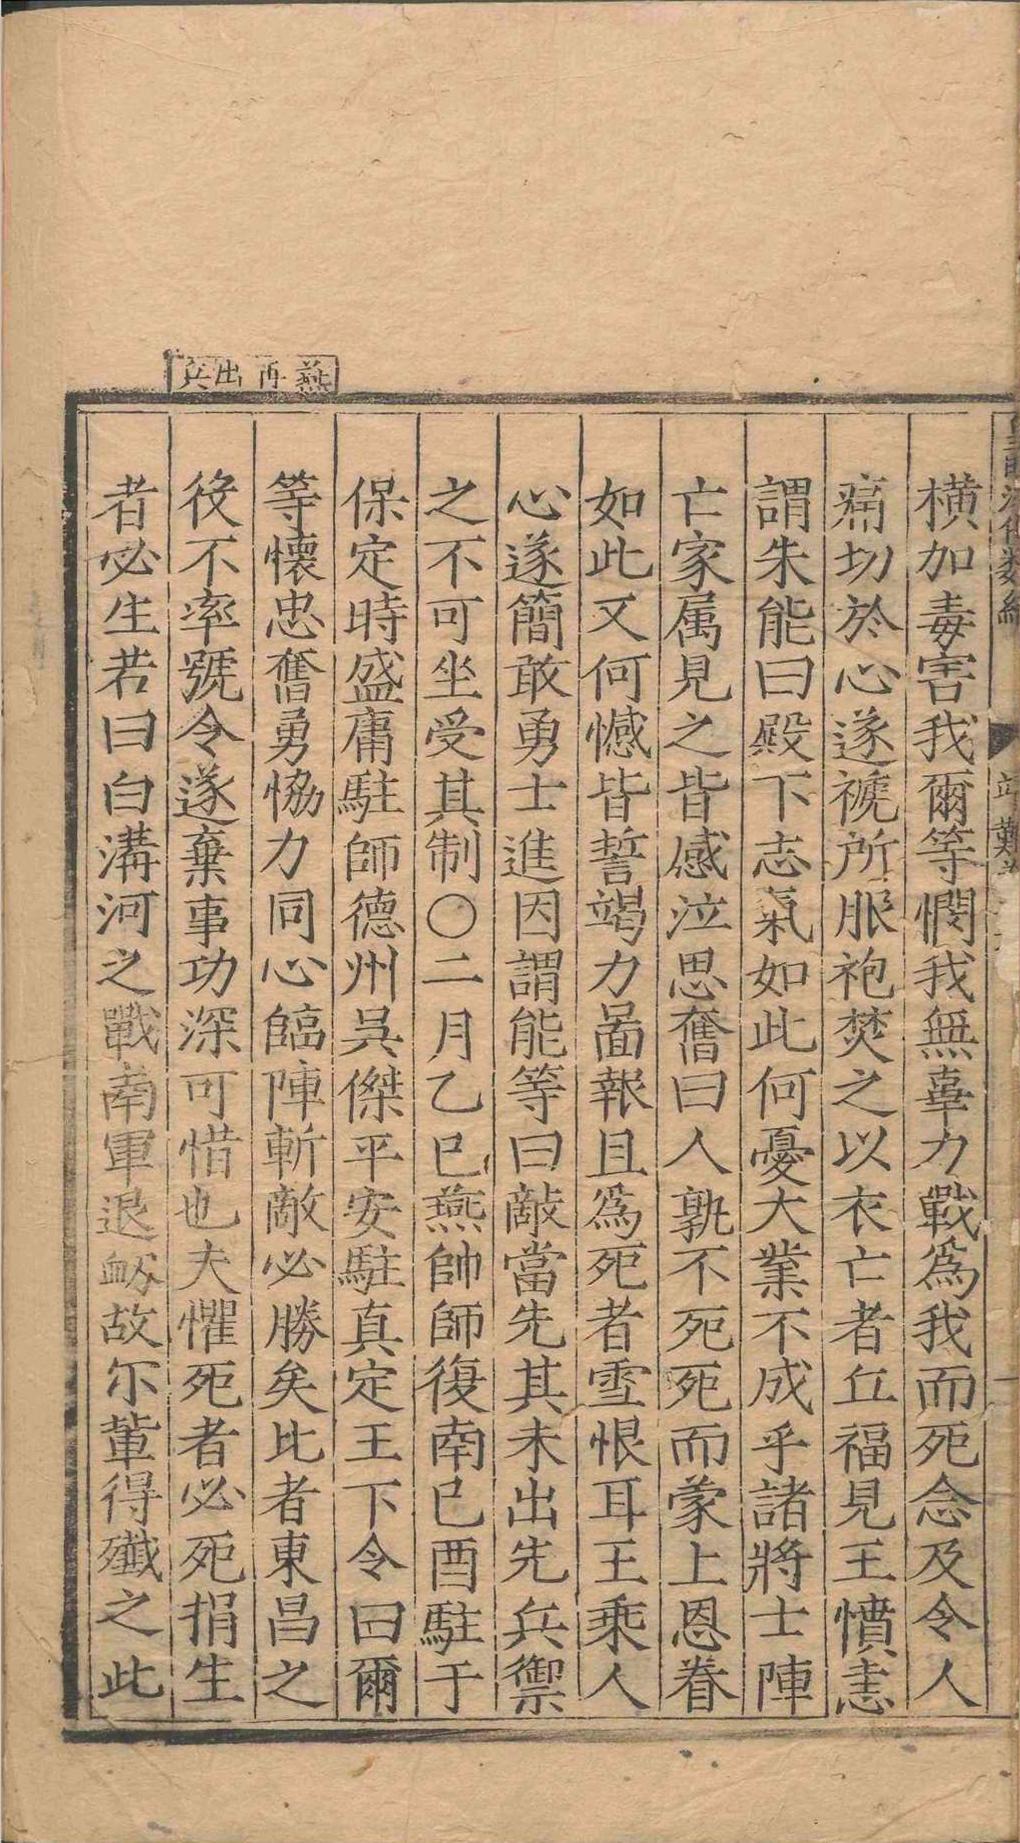 橫加毒害我爾等憫我無辜力戰為我而死念及令人
痛切於心遂褫所服袍焚之以衣亡者丘福見王憤恚
謂朱能曰殿下志氣如此何憂大業不成乎諸將士陣
亡家属見之皆感泣思奮曰人孰不死死而蒙上恩眷
如此又何憾皆誓竭力啚報且為死者雪恨耳王乘人
心遂簡敢勇士進因謂能等曰敵當先其未出先兵禦
之不可坐受其制〇二月乙巳燕帥師復南己酉駐于
保定時盛庸駐師德州吳傑平安駐真定王下令曰爾
等懷忠奮勇恊力同心臨陣斬敵必勝矣比者東昌之
役不率號令遂棄事功深可惜也夫懼死者必死捐生
者必生若曰白溝河之戰南軍退衂故尓輩得殱之此
燕再出兵